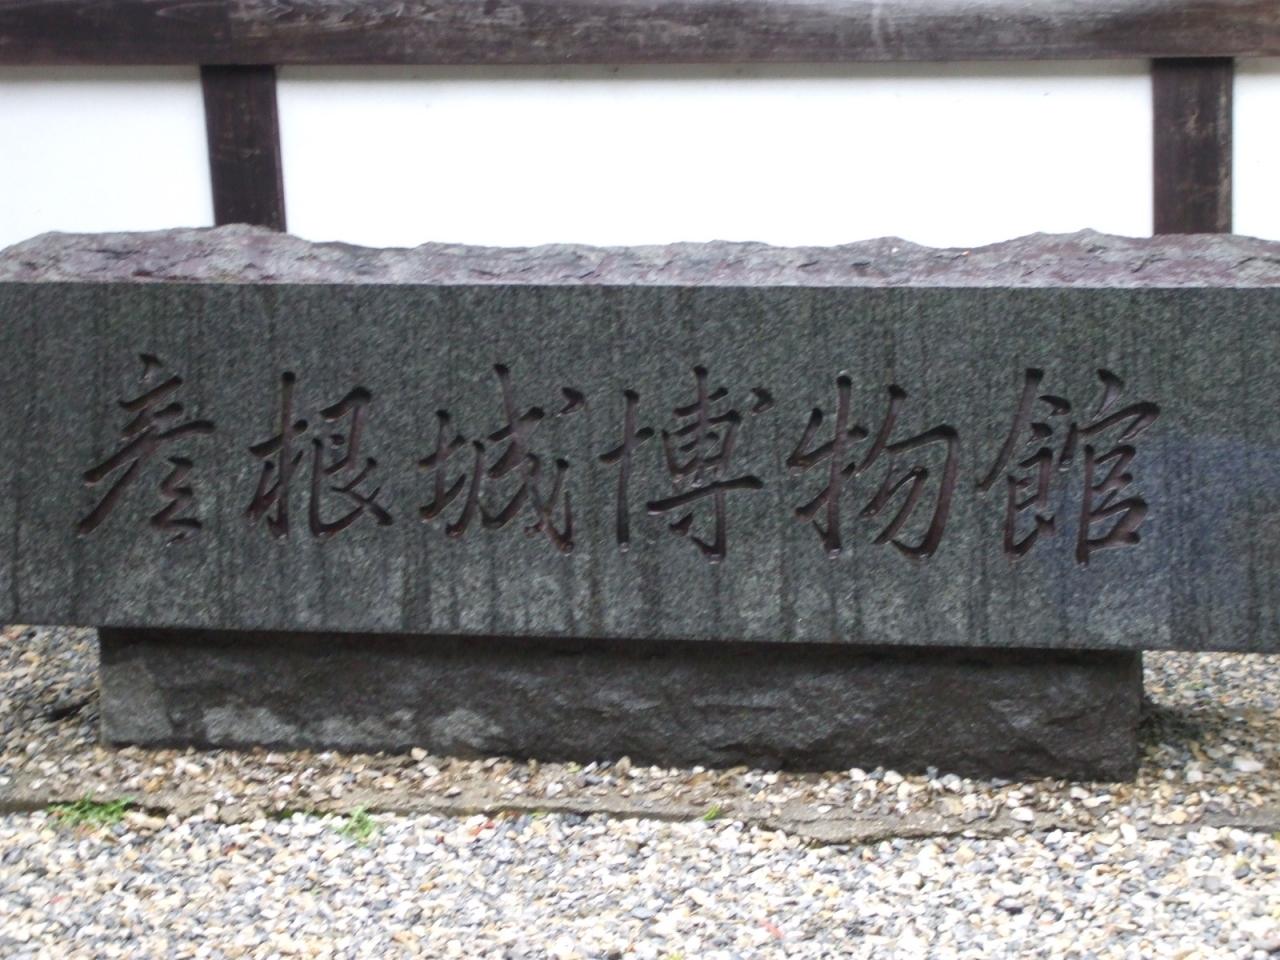 彦根城博物館